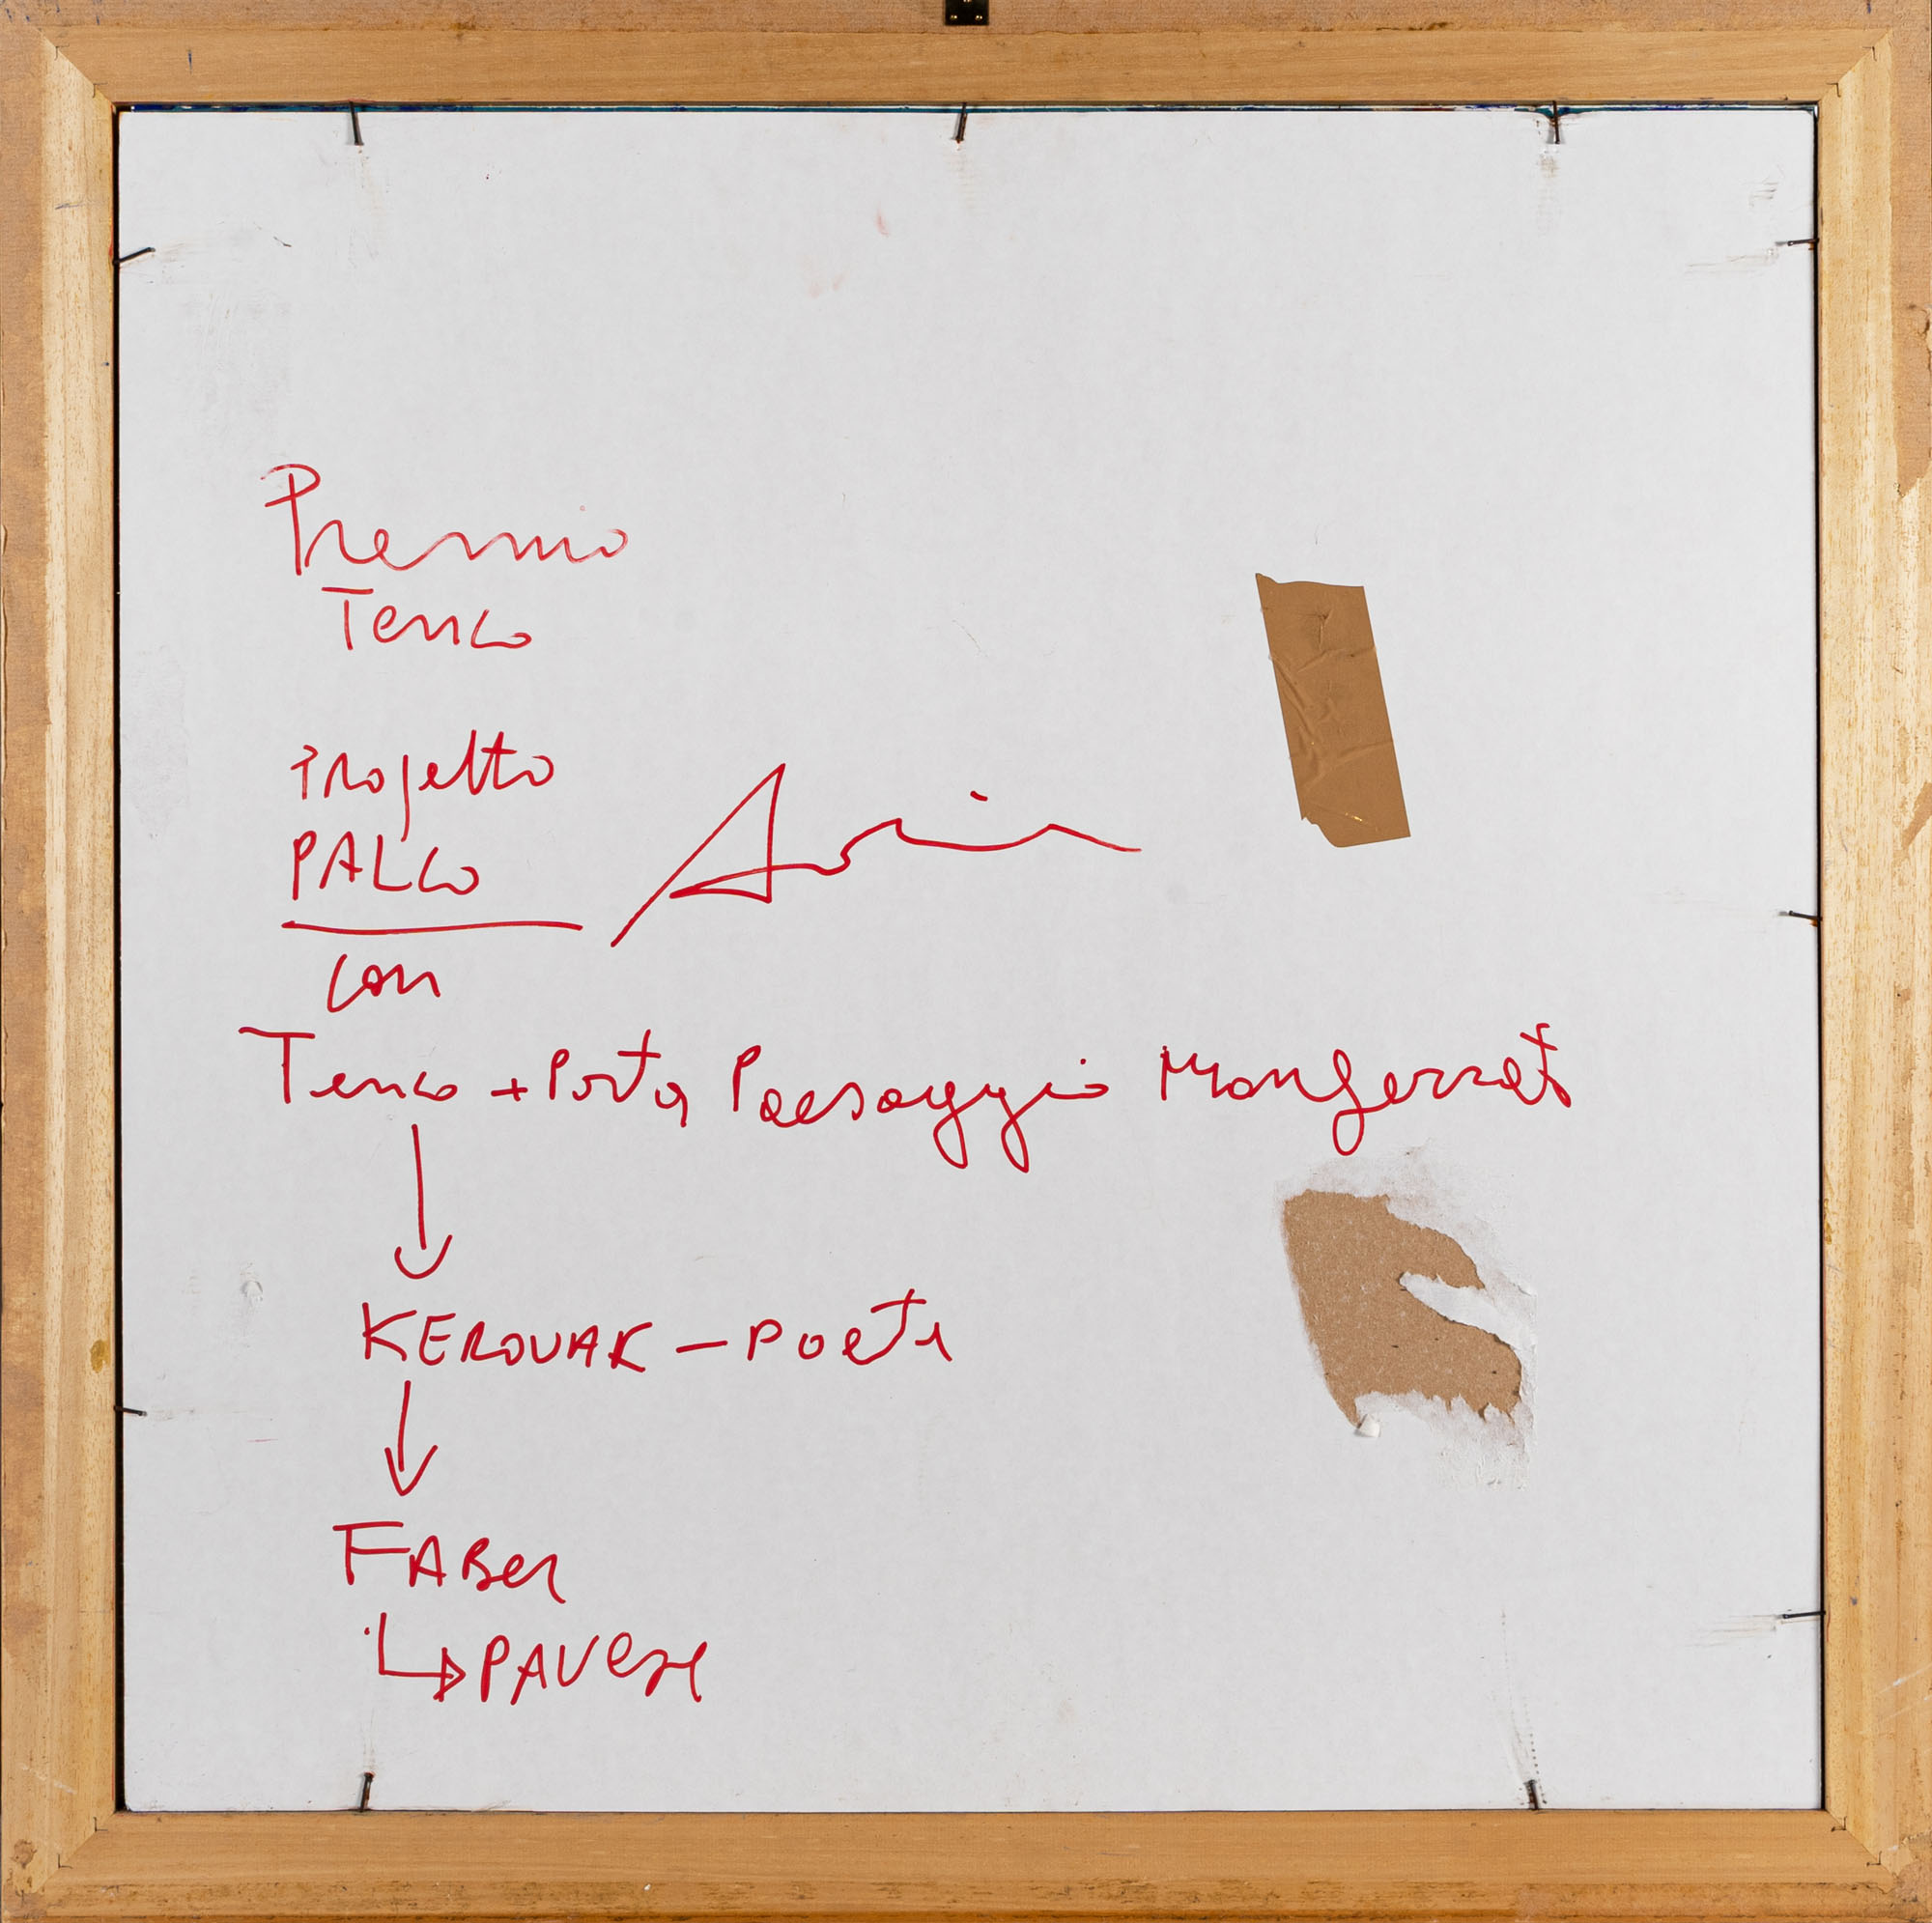 Premio
Tenco
Progetto
PALCO
con
Tenco + Porta Paesaggio Monferrato
KEROUAK - Poeta
FABer
PAVese